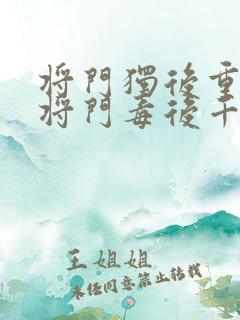 將門獨後重
將門毒後
王姐姐
未经同意禁止转载